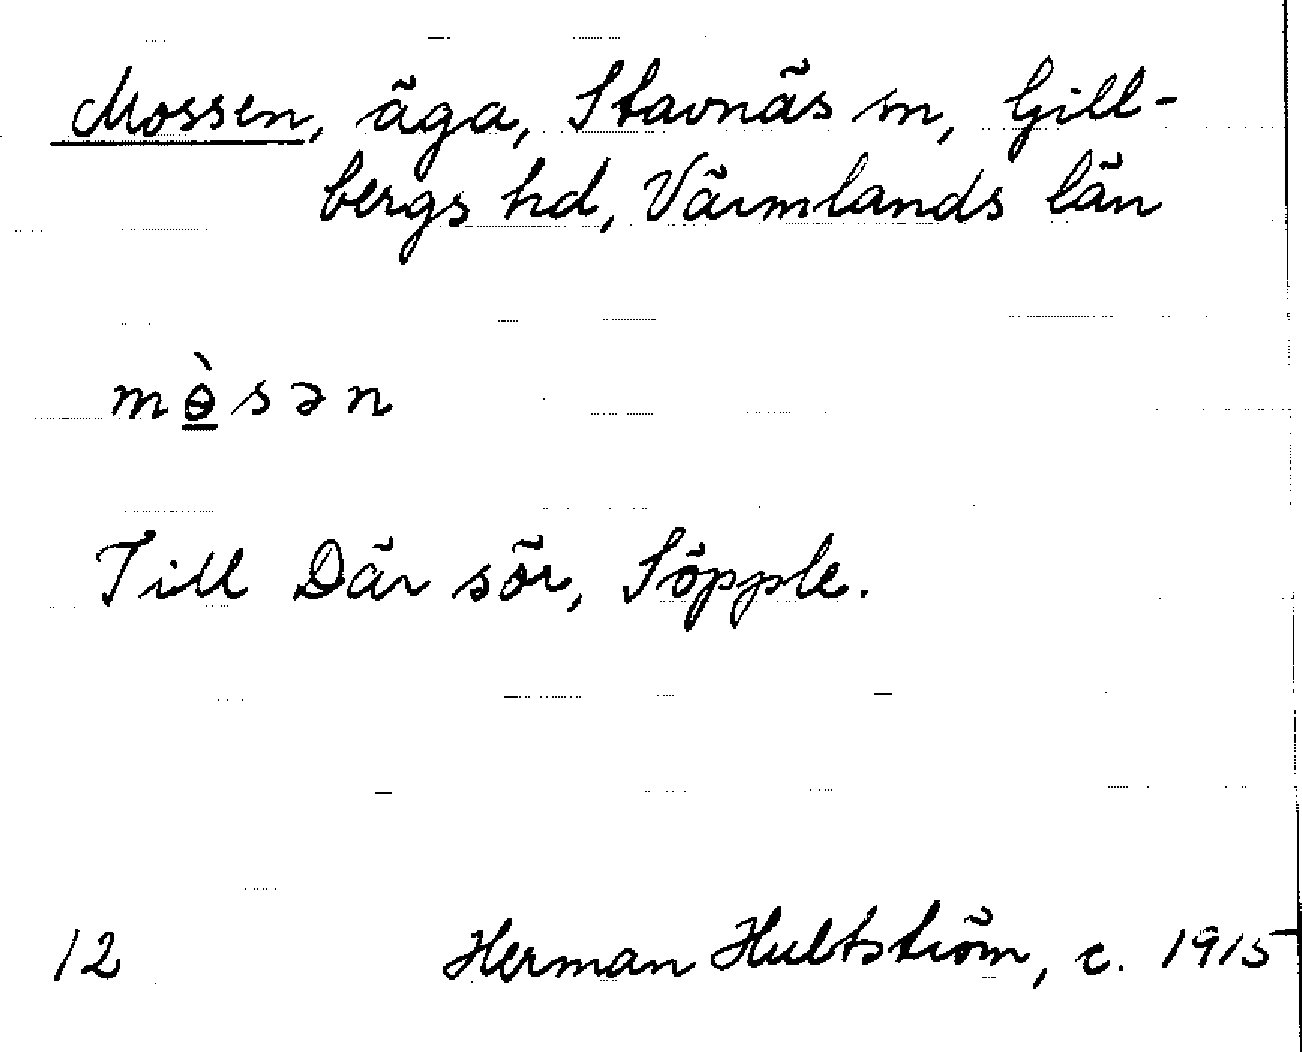 Mossen, äga, Stavnäs sn, Gill-
bergs hd, Värmlands län
mɵ̠̀sən
Till Där sör, Söpple.
12 Herman Hultström, c. 1915